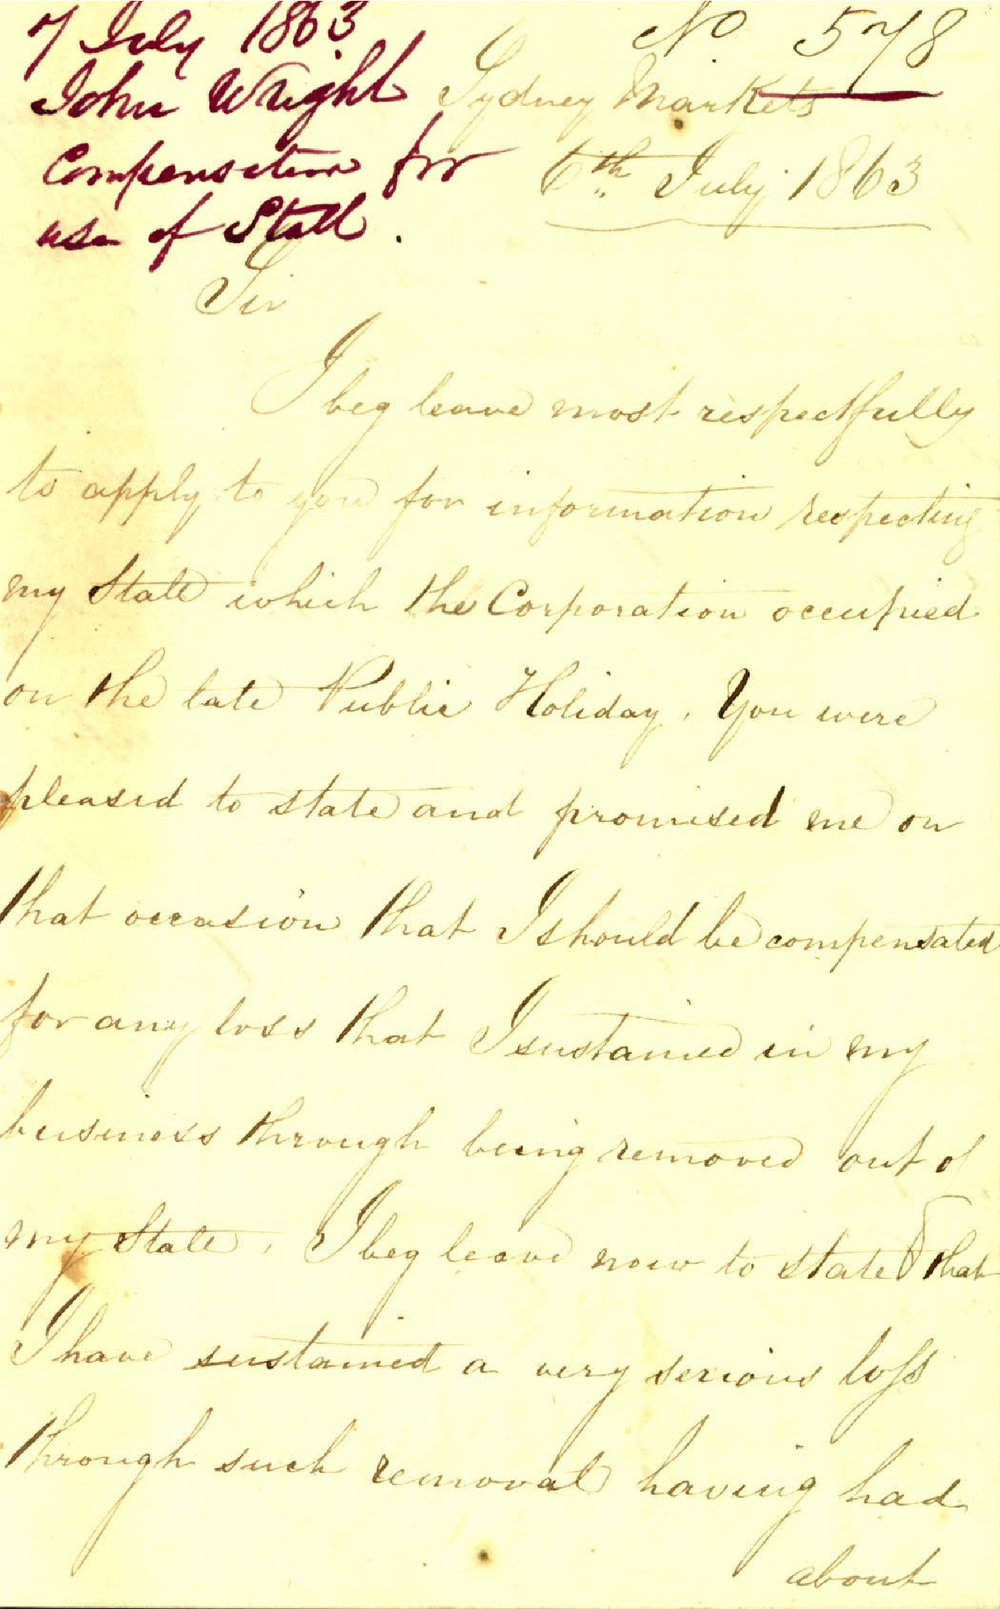 7 July 1863
John Wright
Compensation for
use of Stall.
No 578
Sydney Markets
6th July 1863
Sir
I beg leave most respectfully
to apply to you for information respecting
my Stall which the Corporation occupied
on the late Public Holiday. You were
pleased to state and promised me on
that occasion that I should be compensated
for any loss that I sustained in my
business through being removed out of
my Stall. I beg leave now to state that
I have sustained a very serious loss
through such removal having had
about